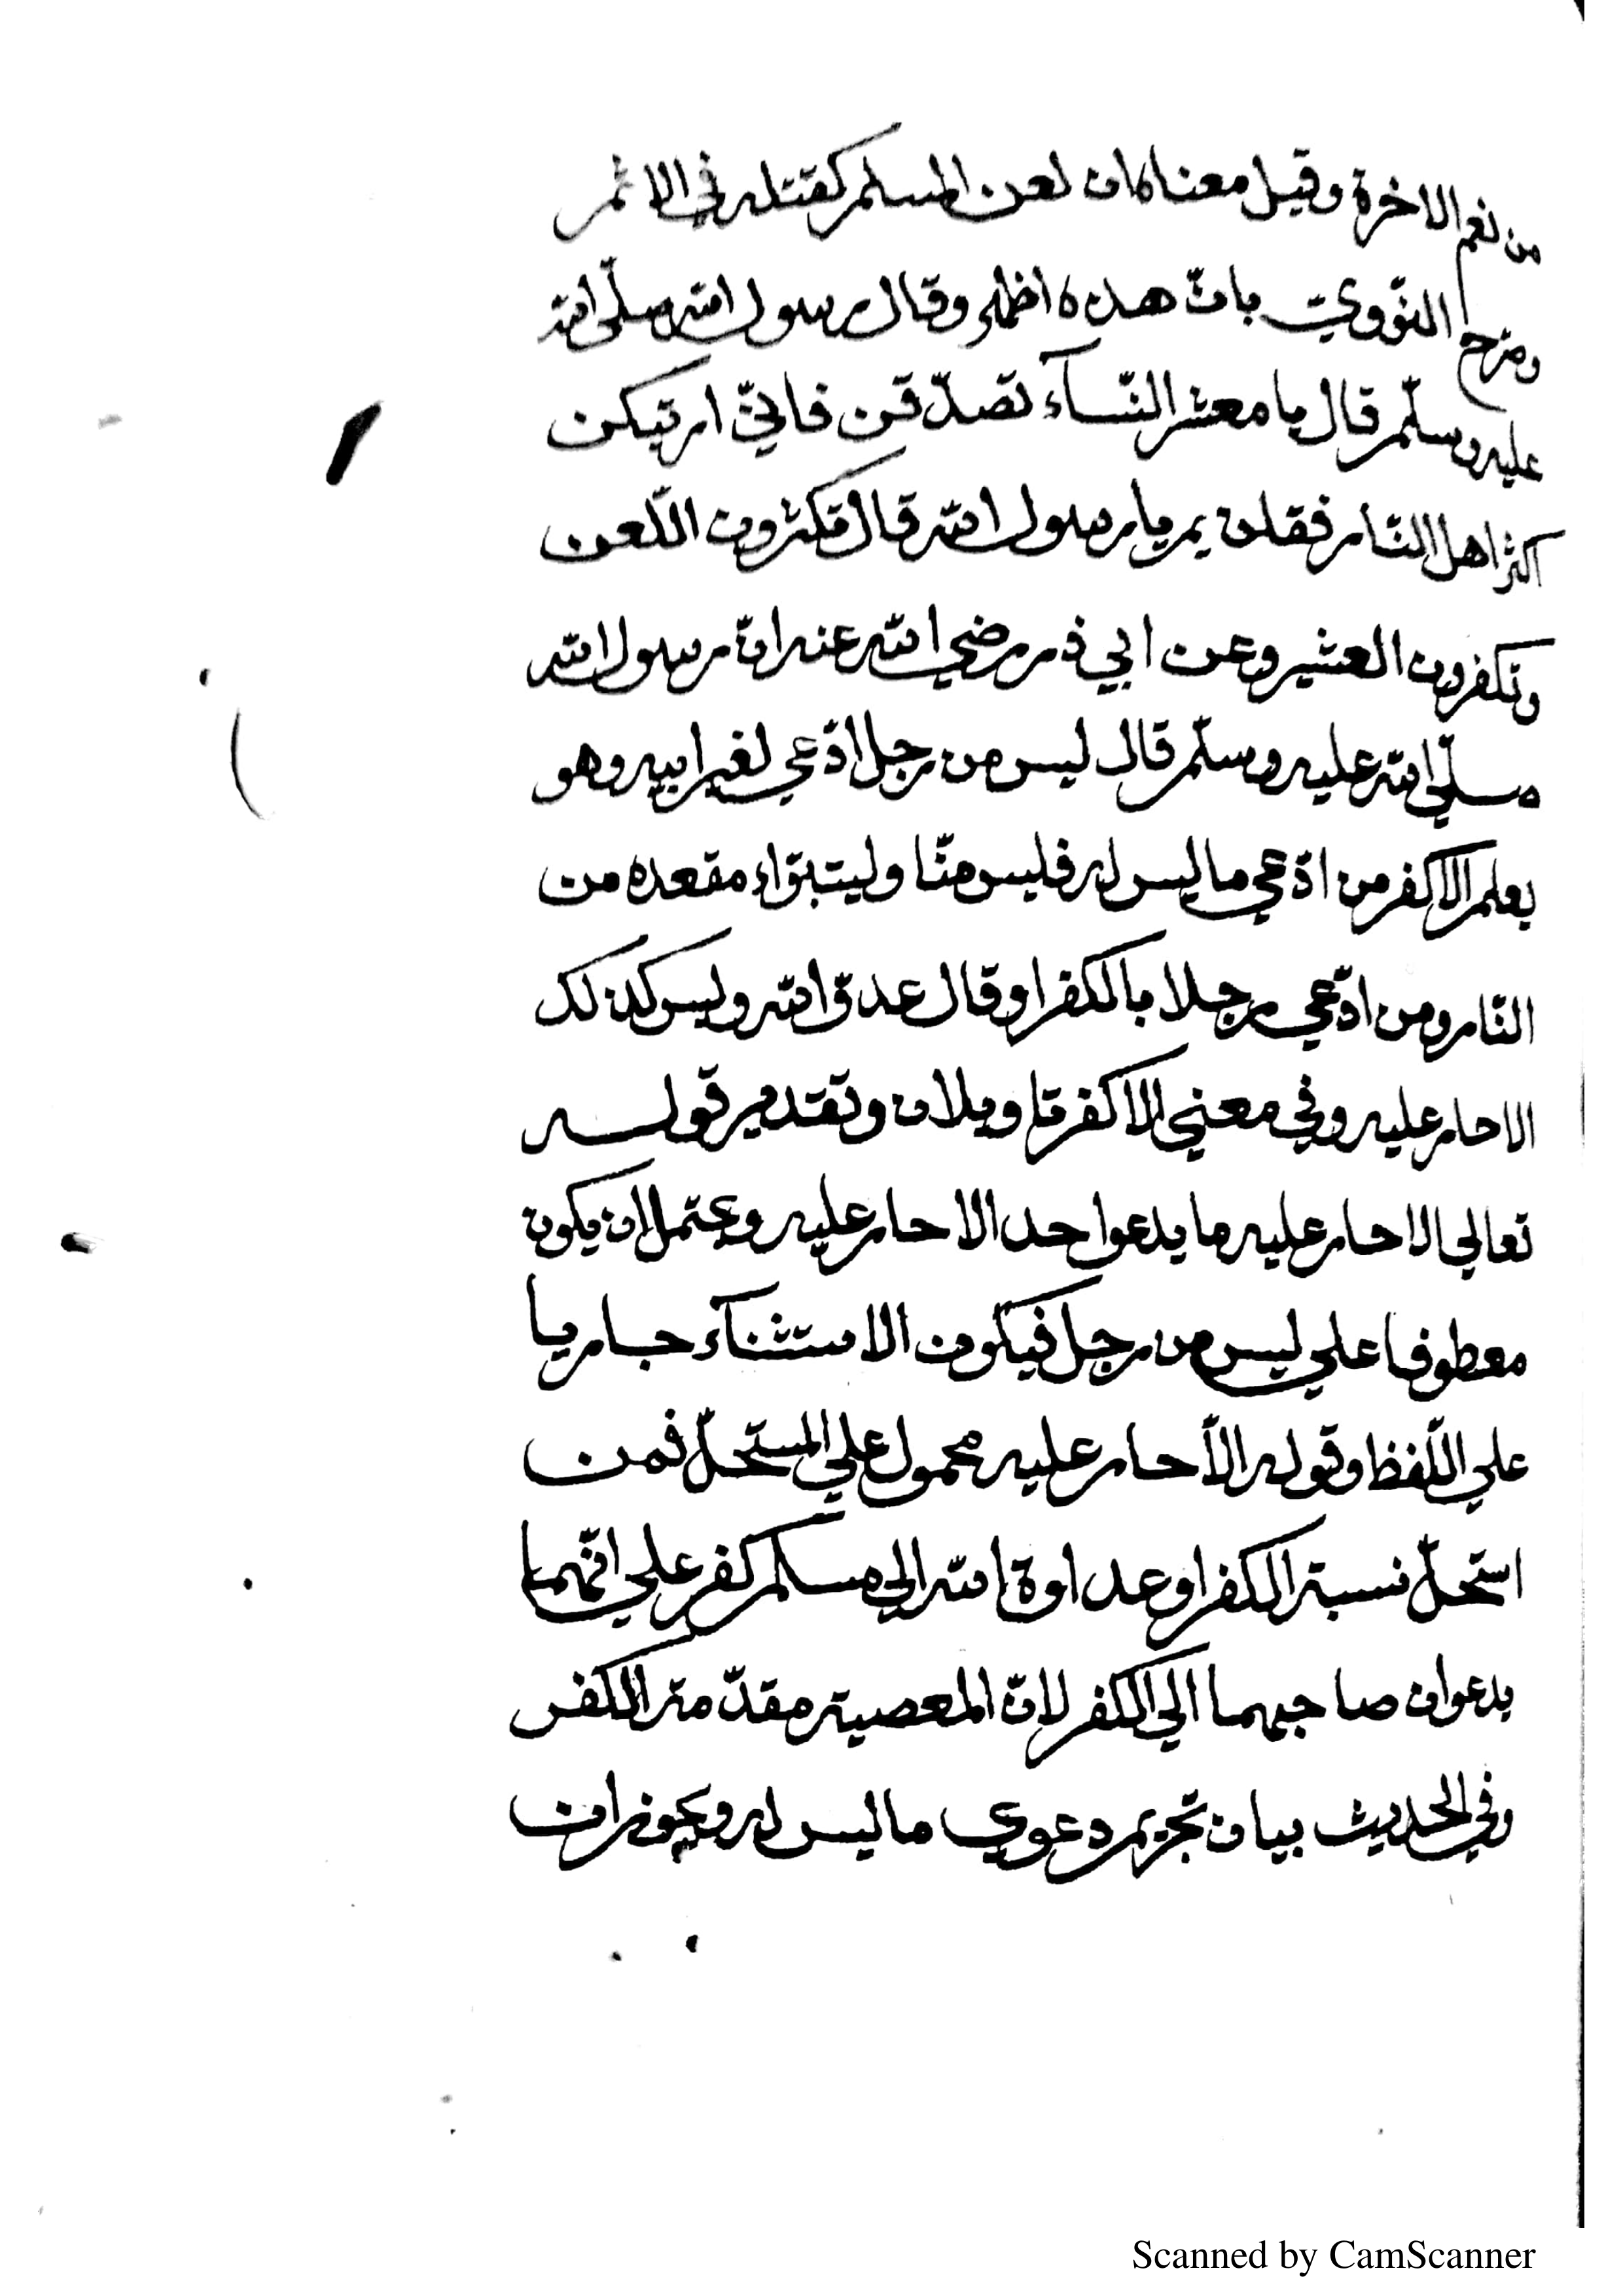 من نعم الاخرة وقيل معناه ان لعن المسلم كقتله في الاثم
ورجح النّوويّ بانّ هذه اظهر وقال رسول الله صلّى الله
عليه وسلّم قال يا معشر النّسآء تصدّقن فانيّ اريتكن
اكثر اهل النّار فقلن بم يا رسول الله قال تكثرون اللّعن
وتكفرون العشير وعن ابي ذر رضي الله عنه انّ رسول الله
صلّي الله عليه وسلّم قال ليس من رجل ادّعي لغير ابيه وهو
يعلم الا كفر من ادّعي ما ليس له فليس منّا وليتبوّاء مقعده من
النّار ومن ادّعي رجلا بالكفر او قال عدوّ الله وليس كذلك
الا حار عليه وفي معني الا كفر تاويلان وتقدير قوله
تعالي الا حار عليه ما يدعوا حد الا حار عليه ويحتمل ان يكون
معطوفا علي ليس من رجل فيكون الاستثنآء جاريا
علي اللّفظ وقوله الاّ حار عليه محمول علي المستحلّ فمن
استحلّ نسبة الكفر او عداوة الله الي مسلم كفر علي انّهما
يدعوان صاحبهما الي الكفر لانّ المعصية مقدّمة الكفر
وفي الحديث بيان تحريم دعوي ما ليس له ويجوز ان
Scanned by CamScanner